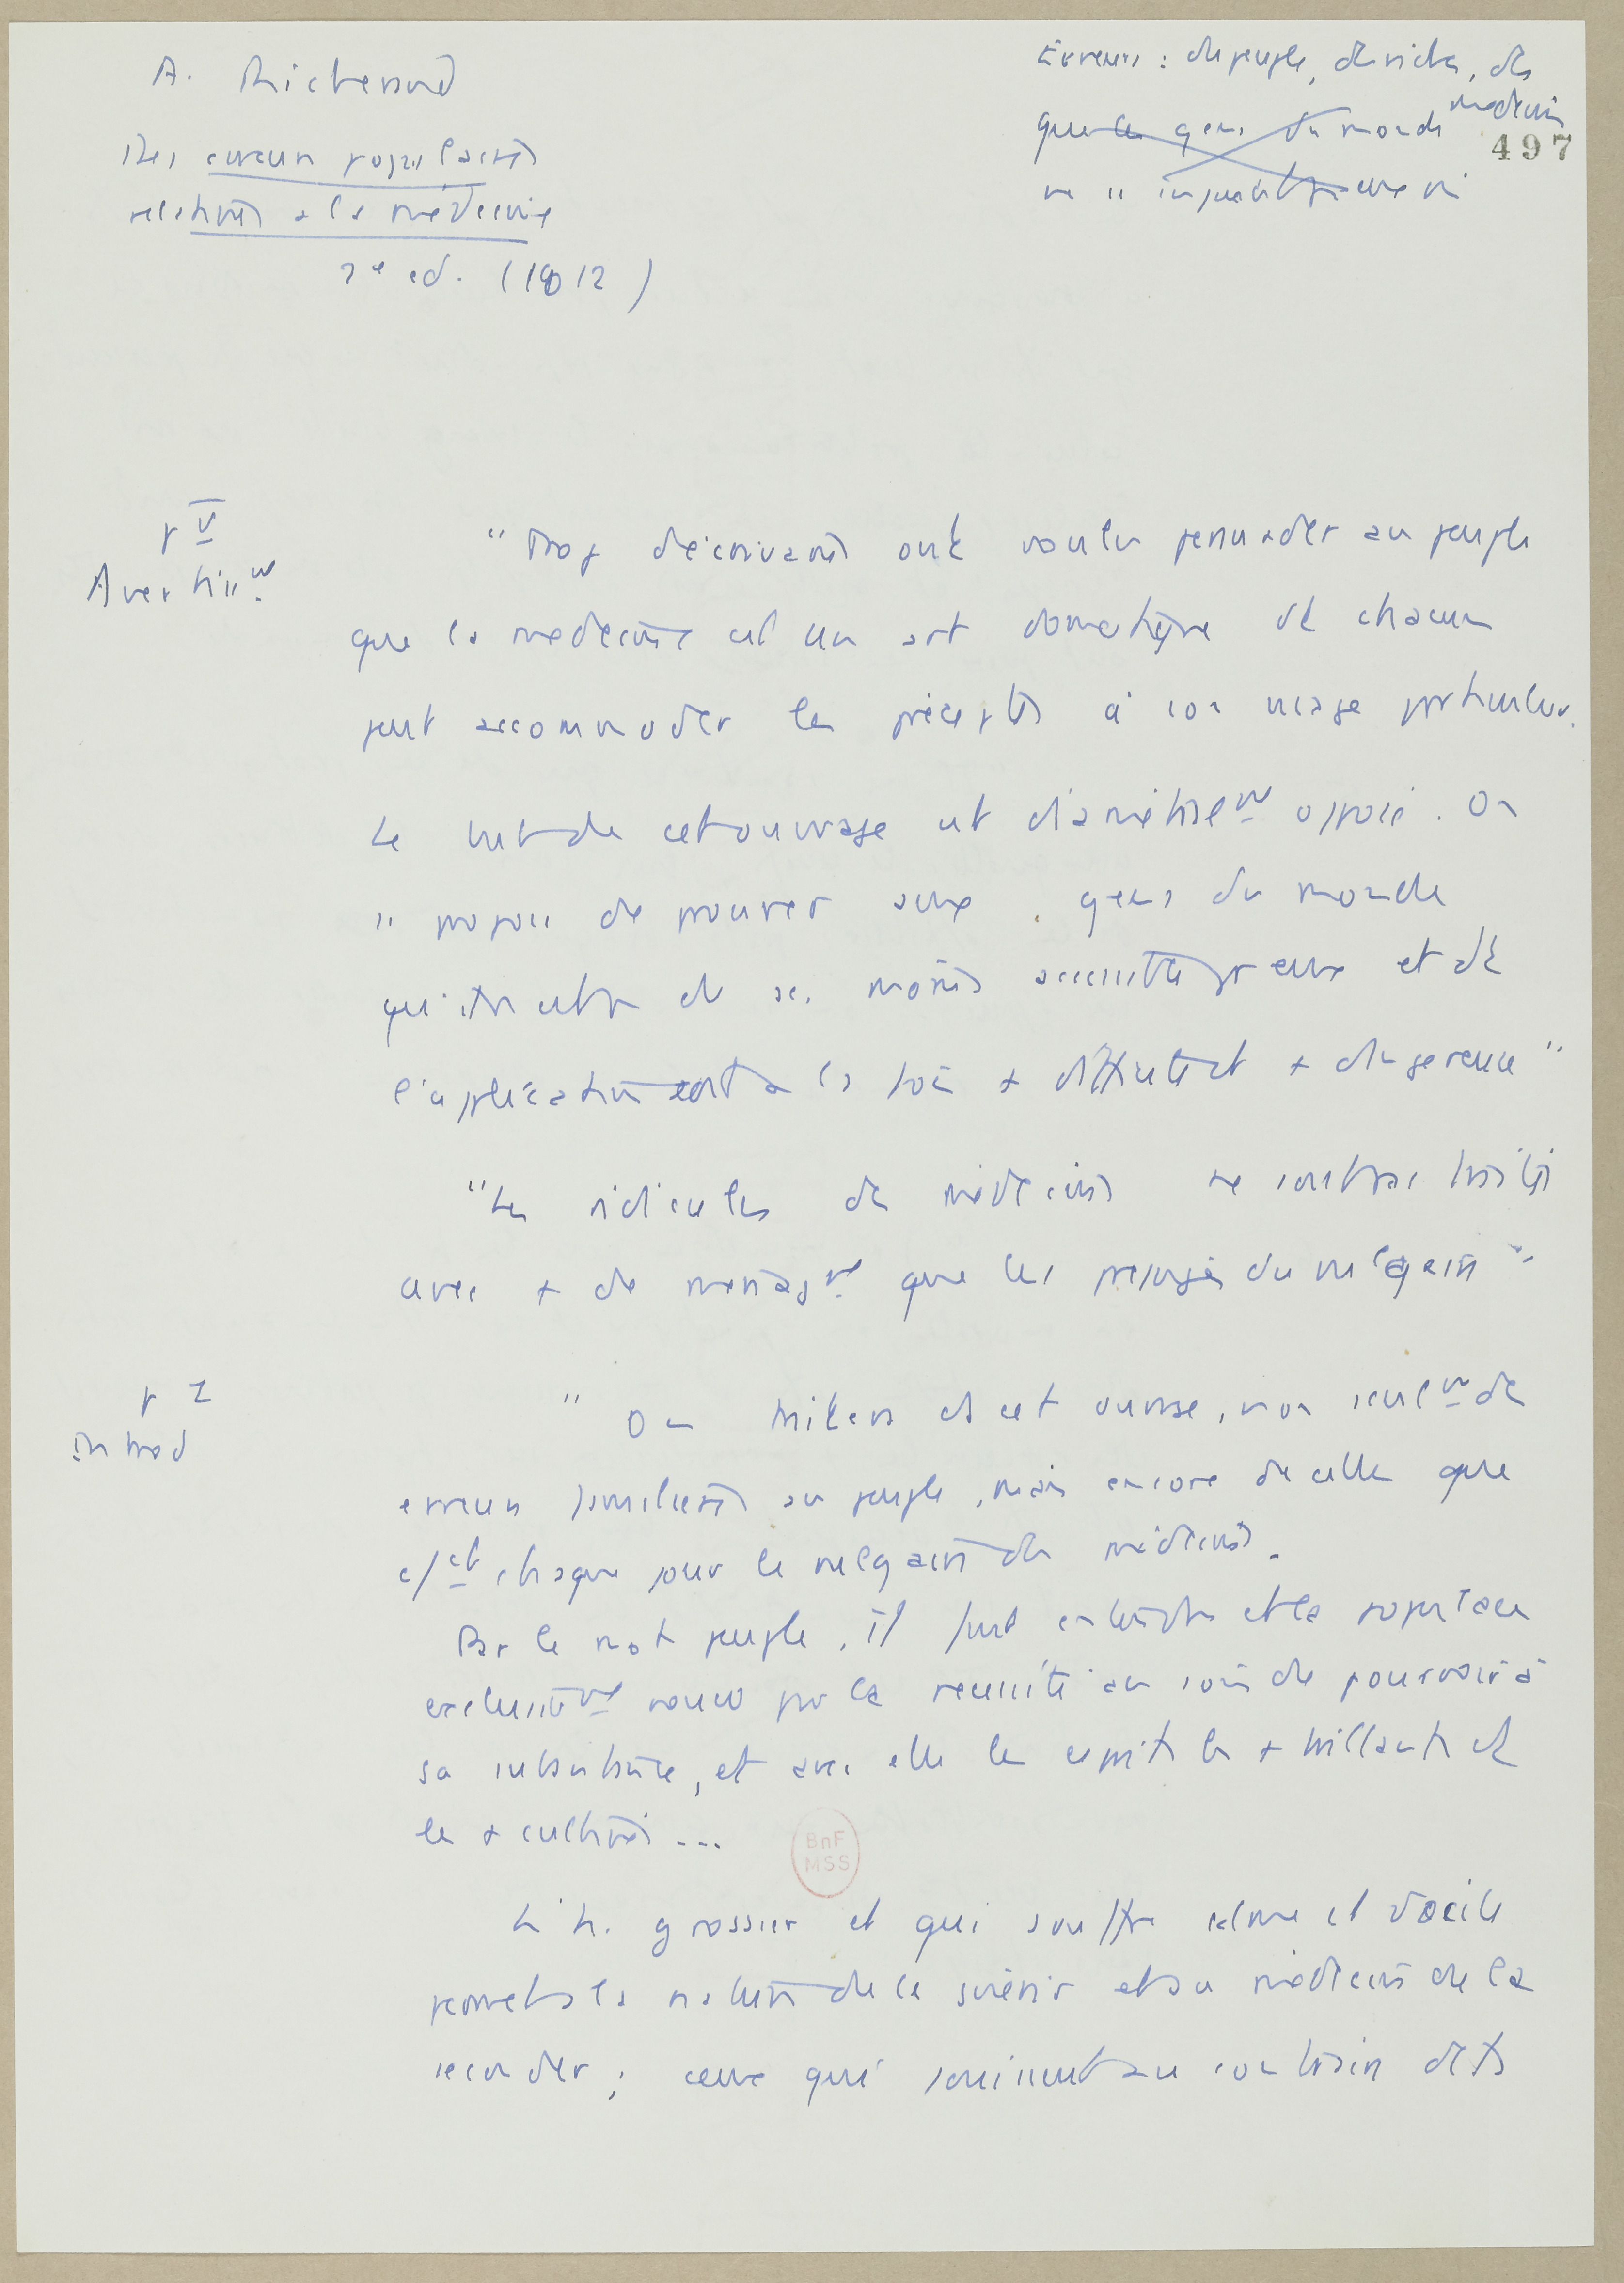 A. Richerand
Des erreurs populaires
relatives à la médecine
2e ed. (1812)
Erreurs : du peuple, des riches, des
médecins
que les gens du monde
497
p V
Avertissmt
"Trop d'écrivains ont voulu persuader au peuple
que la médecine est un art domestique dt chacun
peut accommoder les préceptes à son usage particulier.
Le but de cet ouvrage est diamétralemt opposé. On
s' propose de prouver aux gens du monde
qu'il n'est pr eux et dt
l'application soit à la fois + difficile et + dangereuse"
"Les ridicules des médecins ne sont pas traités
avec + de ménagmt que les préjugés du vulgaire"
p 2
Introd
"On traitera ds cet ouvrage, non seulmt des
erreurs familières au peuple, mais encore de celles que
c/et chaque jour le vulgaire des médecins.
Par le mot peuple, il faut entendre et la populace
exclusivmt vouée par la nécessité au soin de pourvoir à
sa subsistance, et avec elle les esprits les + brillants et
les + cultivés ...
BnF
MSS
L'h. grossier et qui souffre calme et docile
permet à la nature de le guérir et au médecin de la
seconder ; ceux qui jouissent au contraire de ts